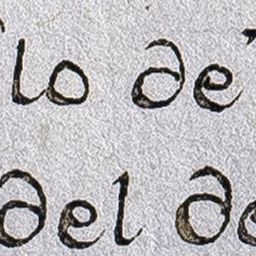 lo de
del de